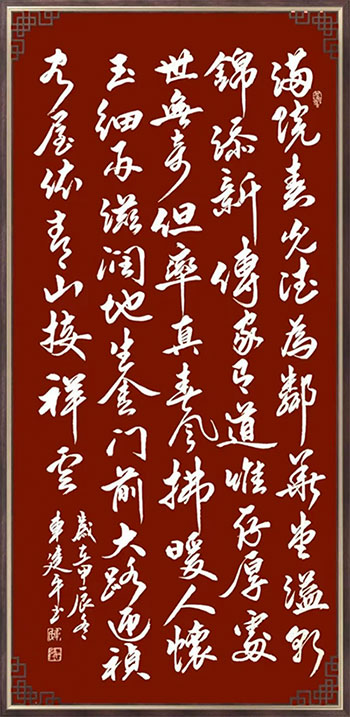 满院春光德為鄰華堂溢彩
錦添新傳家有道惟存厚處
世無奇但率真春风拂暖人懷
玉细雨滋润地生金门前大路迎禎
吉屋依青山接祥雲
歲在甲辰冬
建平书